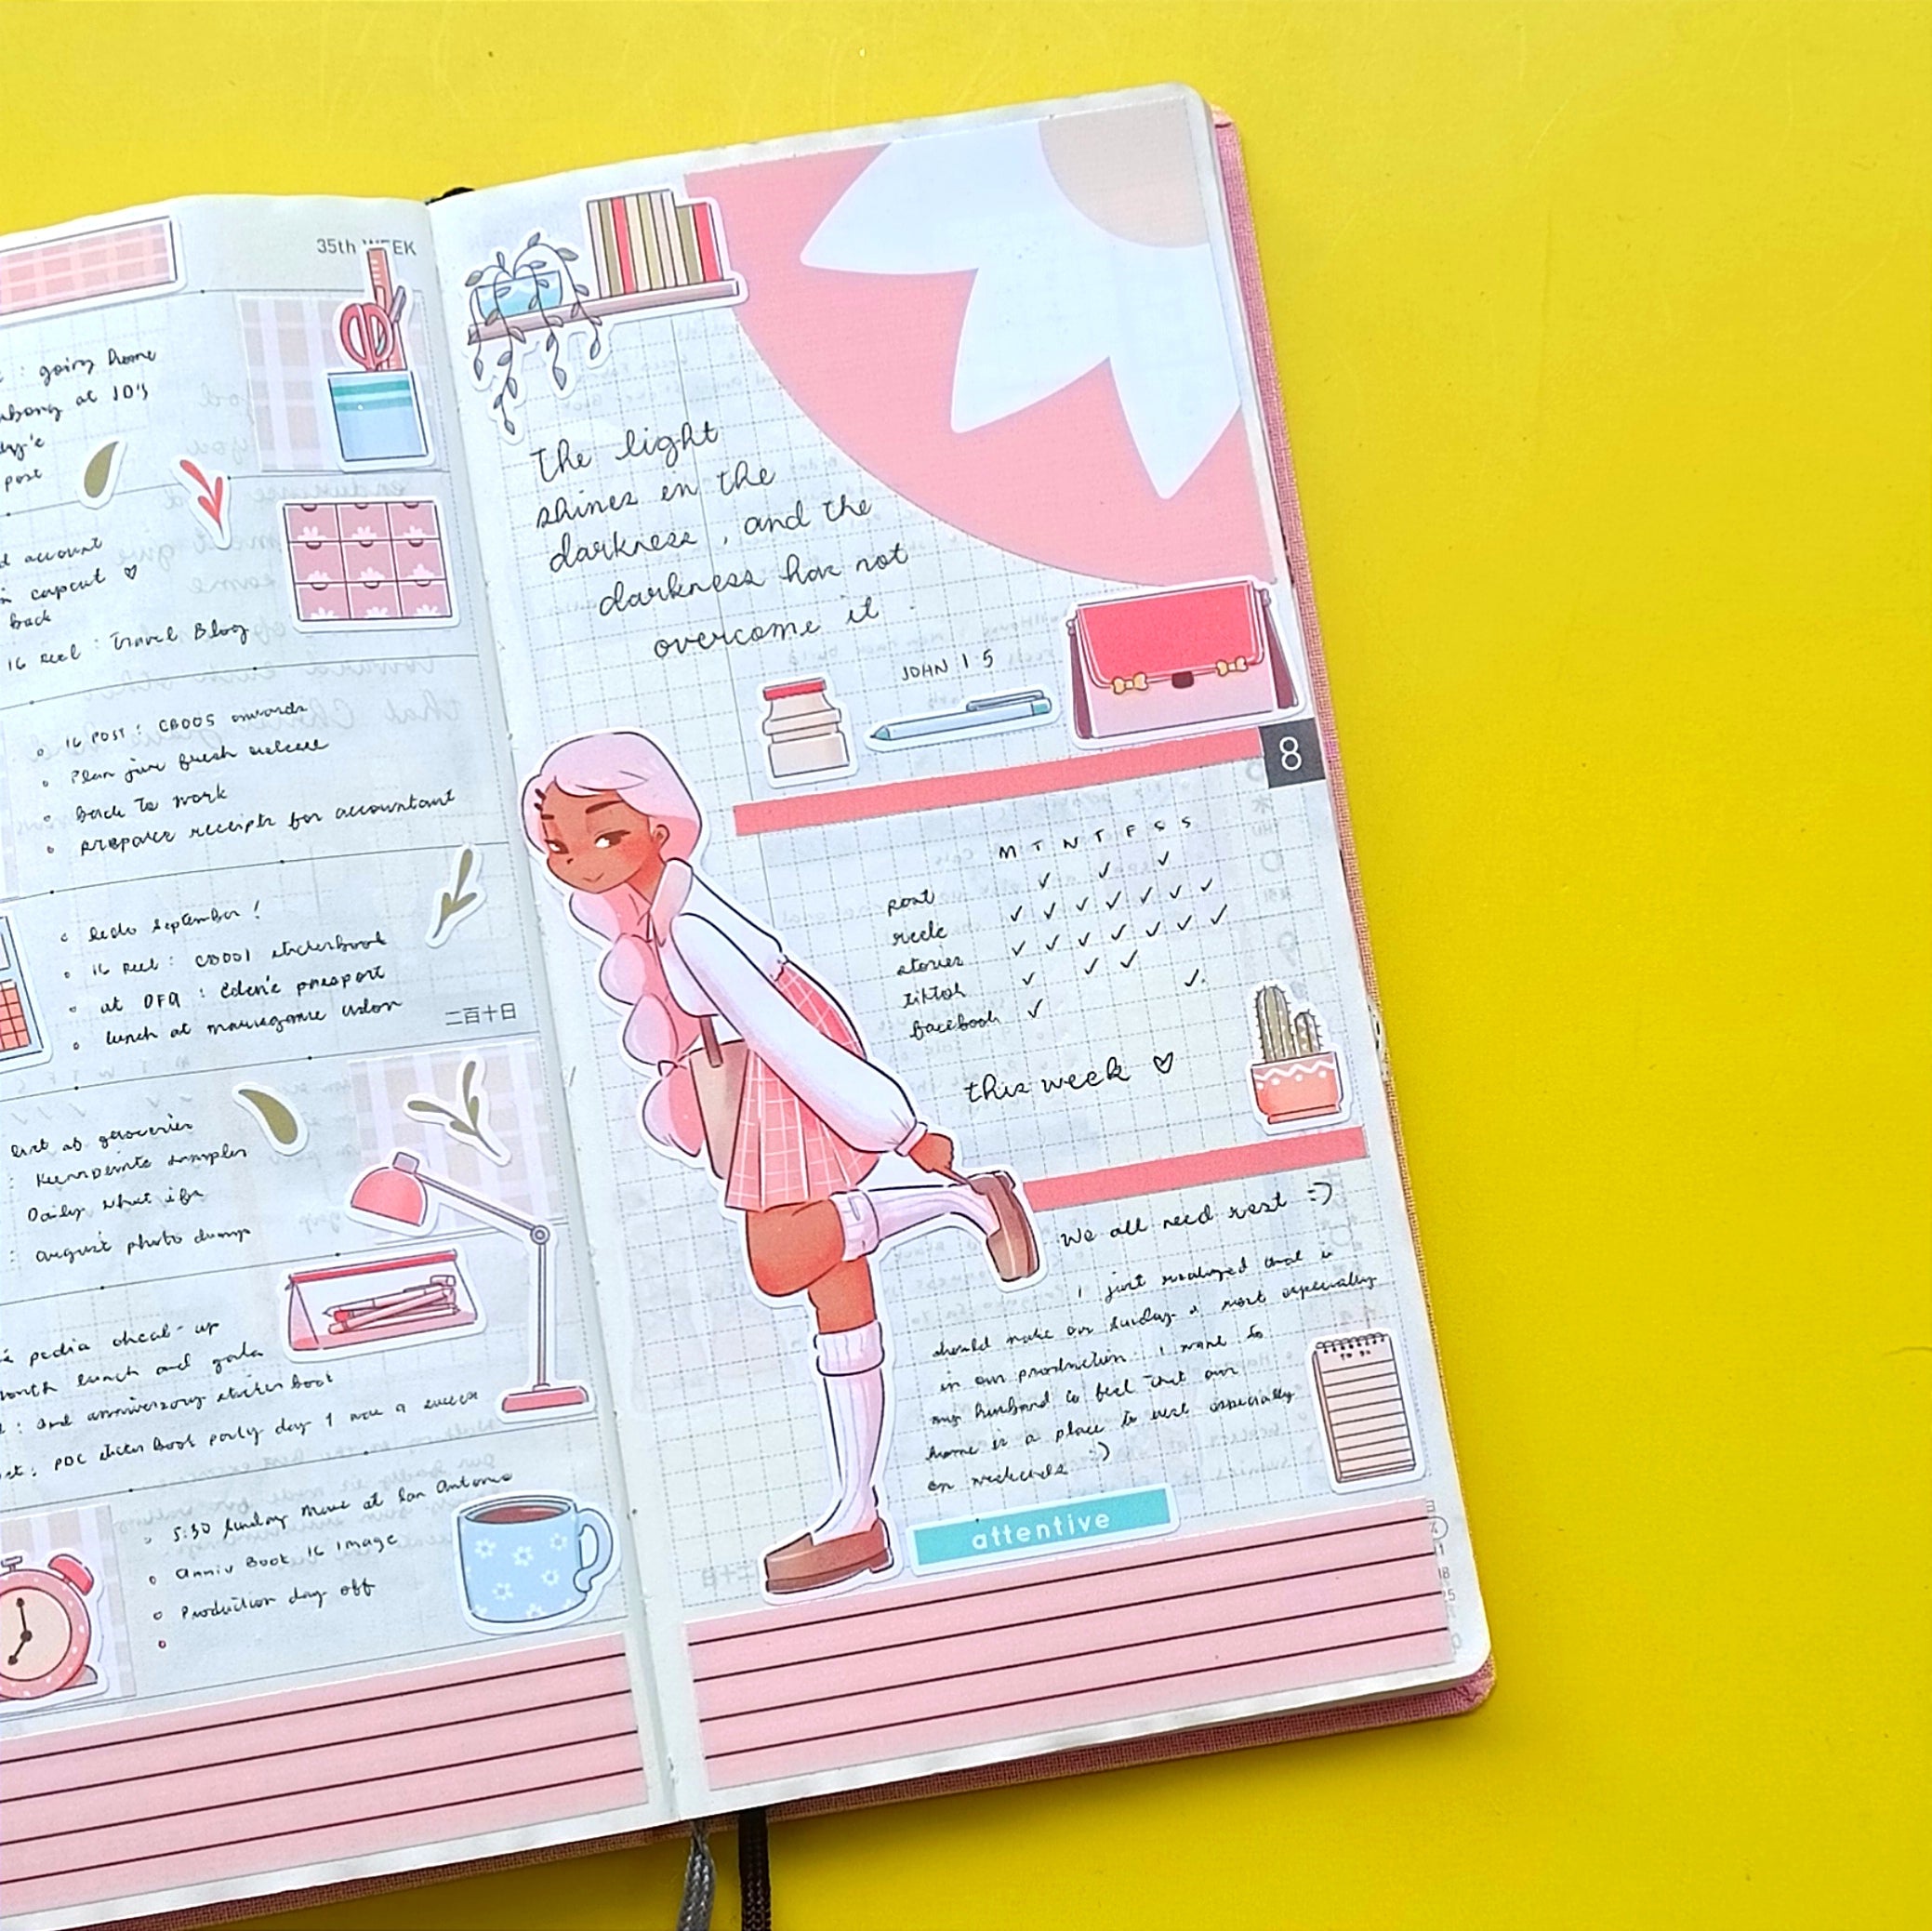 35th WEEK
: going home
at JO's
post
account
capcut ♡
back
IG reel : Travel Blog
IG POST : CB005 onwards
Plan june fresh release
back to work
prepare receipts for accountant
Redo September !
IG reel : CB001 stickerbook
at DFA : Eden's passport
lunch at marugame udon
二百十日
list of groceries
samples
Daily what ifs
: august photo dump
pedia check-up
month lunch and gala
: 2nd anniversary sticker book
: PDC sticker Book party day 1 was a success
5:30 Sunday Mass at San Antonio
Anniv Book IG Image
Production day off
The light
shines in the
darkness, and the
darkness has not
overcome it.
JOHN 1 5
8
M T W T F S S
post ✓ ✓ ✓
reels ✓ ✓ ✓ ✓ ✓ ✓ ✓
stories ✓ ✓ ✓ ✓ ✓ ✓ ✓
tiktok ✓ ✓ ✓
facebook ✓ ✓
this week ♡
We all need rest :)
I just realized that is
should make our Sunday & most especially
in our production. I want to
my husband to feel that our
home is a place to rest especially
on weekends :)
TO DO
attentive